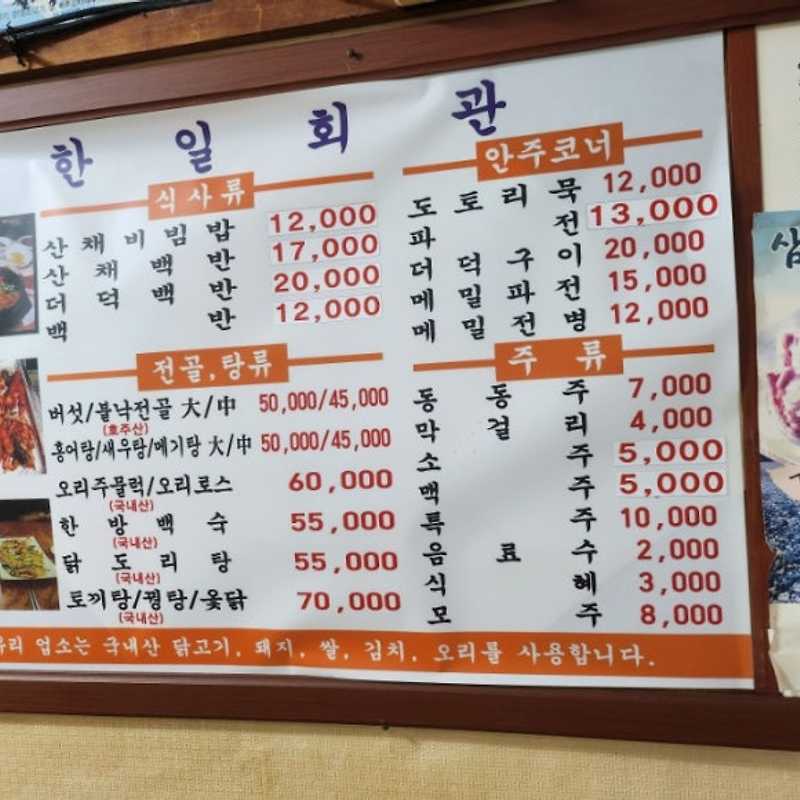 한 일 회 관
식사류
산채비빔밥 12,000
산채백반 17,000
더덕백반 20,000
백반 12,000
전골,탕류
버섯/불낙전골 大/中 50,000/45,000
(호주산)
홍어탕/새우탕/메기탕 大/中 50,000/45,000
오리주물럭/오리로스 60,000
(국내산)
한방백숙 55,000
(국내산)
닭도리탕 55,000
(국내산)
토끼탕/꿩탕/옻닭 70,000
(국내산)
안주코너
도토리묵 12,000
파전 13,000
더덕구이 20,000
메밀파전 15,000
메밀전병 12,000
주 류
동동주 7,000
막걸리 4,000
소주 5,000
맥주 5,000
특주 10,000
음료수 2,000
식혜 3,000
모주 8,000
업소는 국내산 닭고기, 돼지, 쌀, 김치, 오리를 사용합니다.